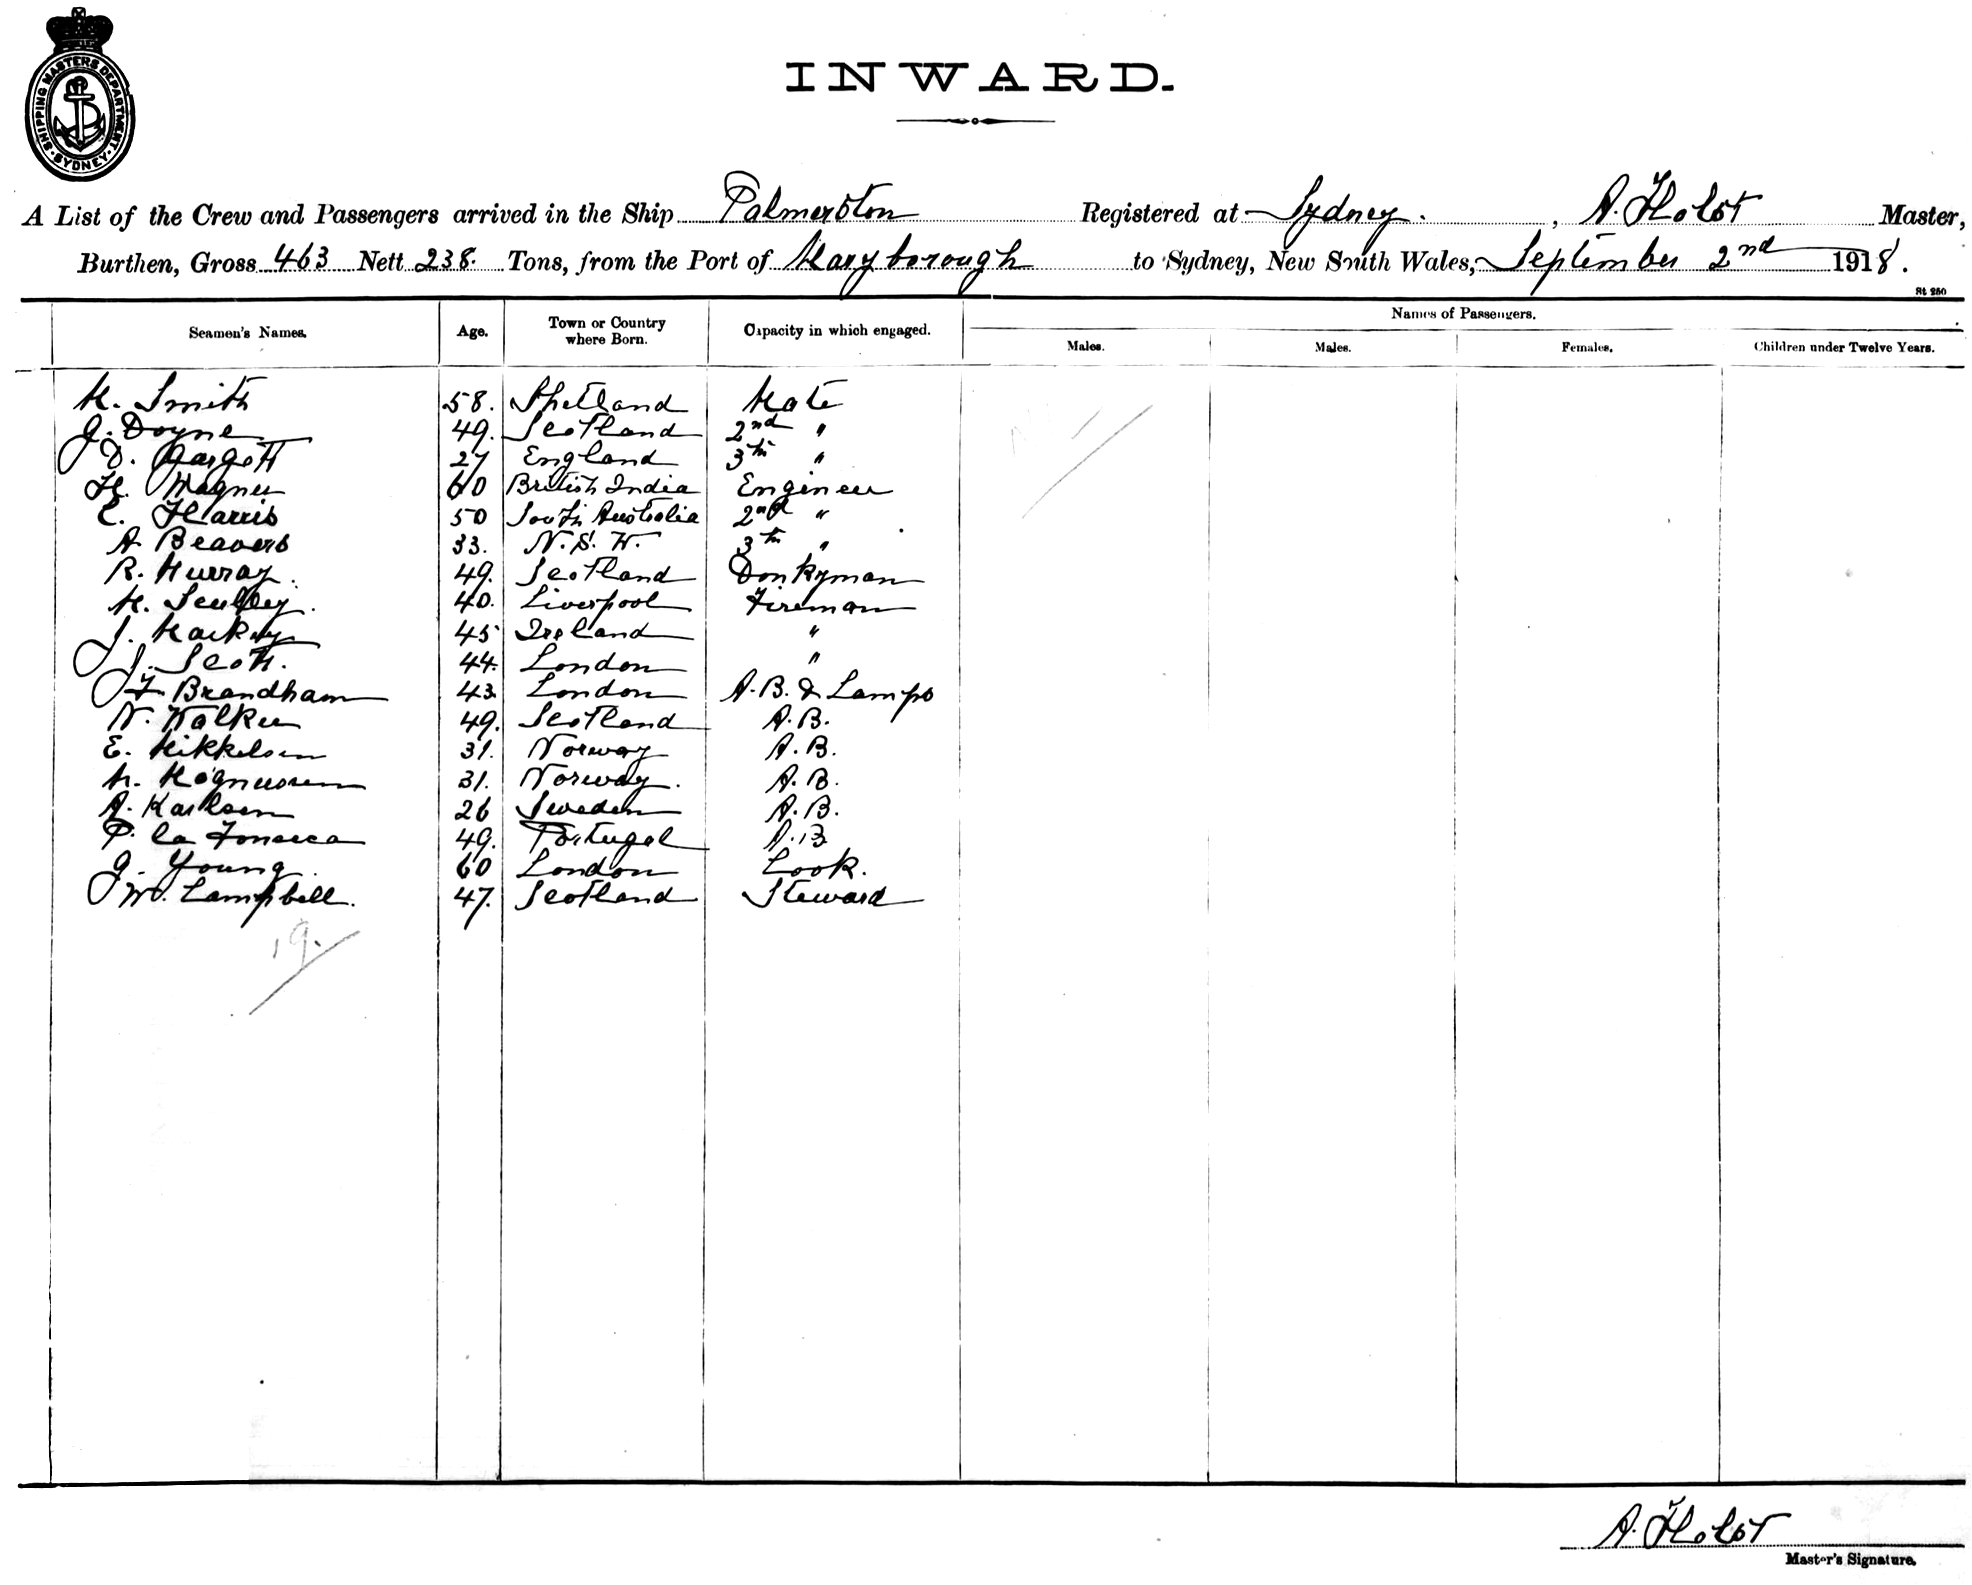 SHIPPING MASTERS DEPARTMENT · SYDNEY ·
INWARD.
A List of the Crew and Passengers arrived in the Ship Palmerston Registered at Sydney. , A. Holst Master,
Burthen, Gross 463 Nett 238. Tons, from the Port of Maryborough to Sydney, New South Wales, September 2nd 1918.
St 250
Seamen's Names. Age. Town or Country where Born. Capacity in which engaged. Names of Passengers.
Males. Males. Females. Children under Twelve Years.
M. Smith 58. Shetland Mate
J. Doyne 49. Scotland 2nd "
D. Gargett 27 England 3th "
H. Wagner 60 British India Engineer
C. Harris 50 South Australia 2nd "
A Beavers 33. N.S.W. 3th "
R. Murray. 49. Scotland Donkyman
M. Sculley. 40. Liverpool Fireman
J. Mackay 45 Ireland "
J. Scott. 44. London "
F Brandham 43 London A.B. & Lamps
N. Walker 49. Scotland A.B.
E. Mikkelsen 31. Norway A.B.
M. Magnusen 31. Norway. A.B.
A. Karlsen 26 Sweden A.B.
P. la Fonseca 49. Portugal A.B
J. Young. 60 London Cook.
W. Campbell. 47. Scotland Steward
19.
A. Holst
Master's Signature.